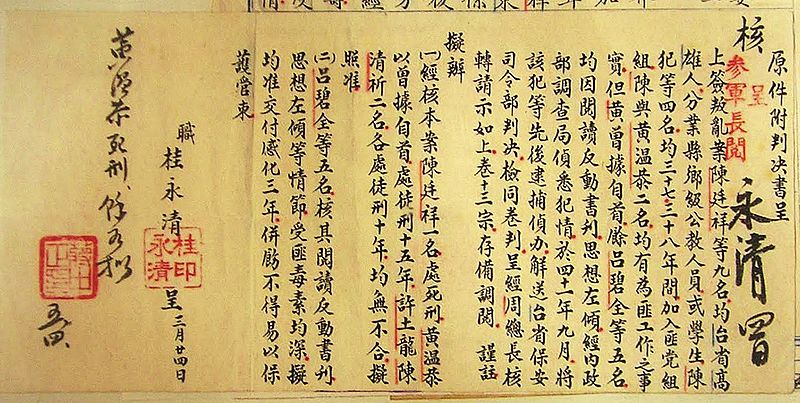 原件附判決書呈
呈
參軍長閱
永清
核
上簽叛亂案陳廷祥等九名均台省高
雄人分業縣鄉級公教人員或學生陳
犯等四名均三七、三十八年間加入匪黨組
組陳與黃温恭二名均有為匪工作之事
實但黃曾據自首餘呂碧全等五名
均因閱讀反動書刊思想左傾經內政
部調查局偵悉犯情於四十一年九月將
該犯等先後逮捕偵办解送台省保安
司令部判决檢同卷判呈經周總長核
轉請示如上卷十三宗存備調閱 謹註
擬辦
㈠經核本案陳廷祥一名處死刑黃温恭
以曾據自首處徒刑十五年許土龍陳
清祈二名各處徒刑十年均無不合擬
照准
㈡呂碧全等五名核其閱讀反動書刊
思想左傾等情節受匪毒素均深擬
均准交付感化三年併飭不得易以保
護管束
職 桂永清 呈 三月廿四日
桂印永清
黃温恭死刑、餘如擬
蔣中正印